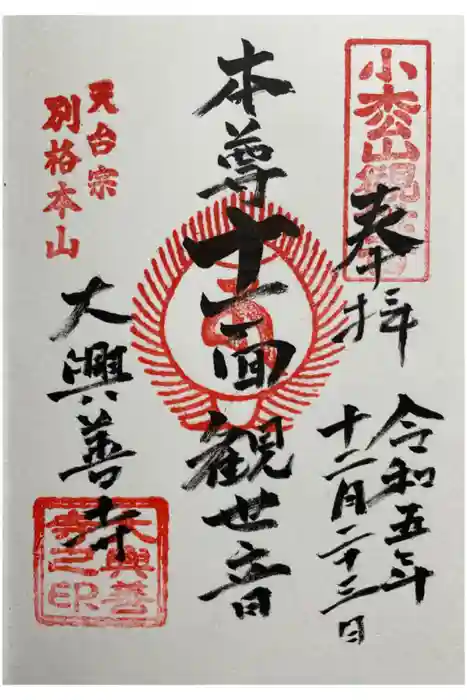 小松山観音
奉拝
令和五年
十二月二十三日
本尊十一面観世音
天台宗
別格本山
大興善寺
大興善
寺之印